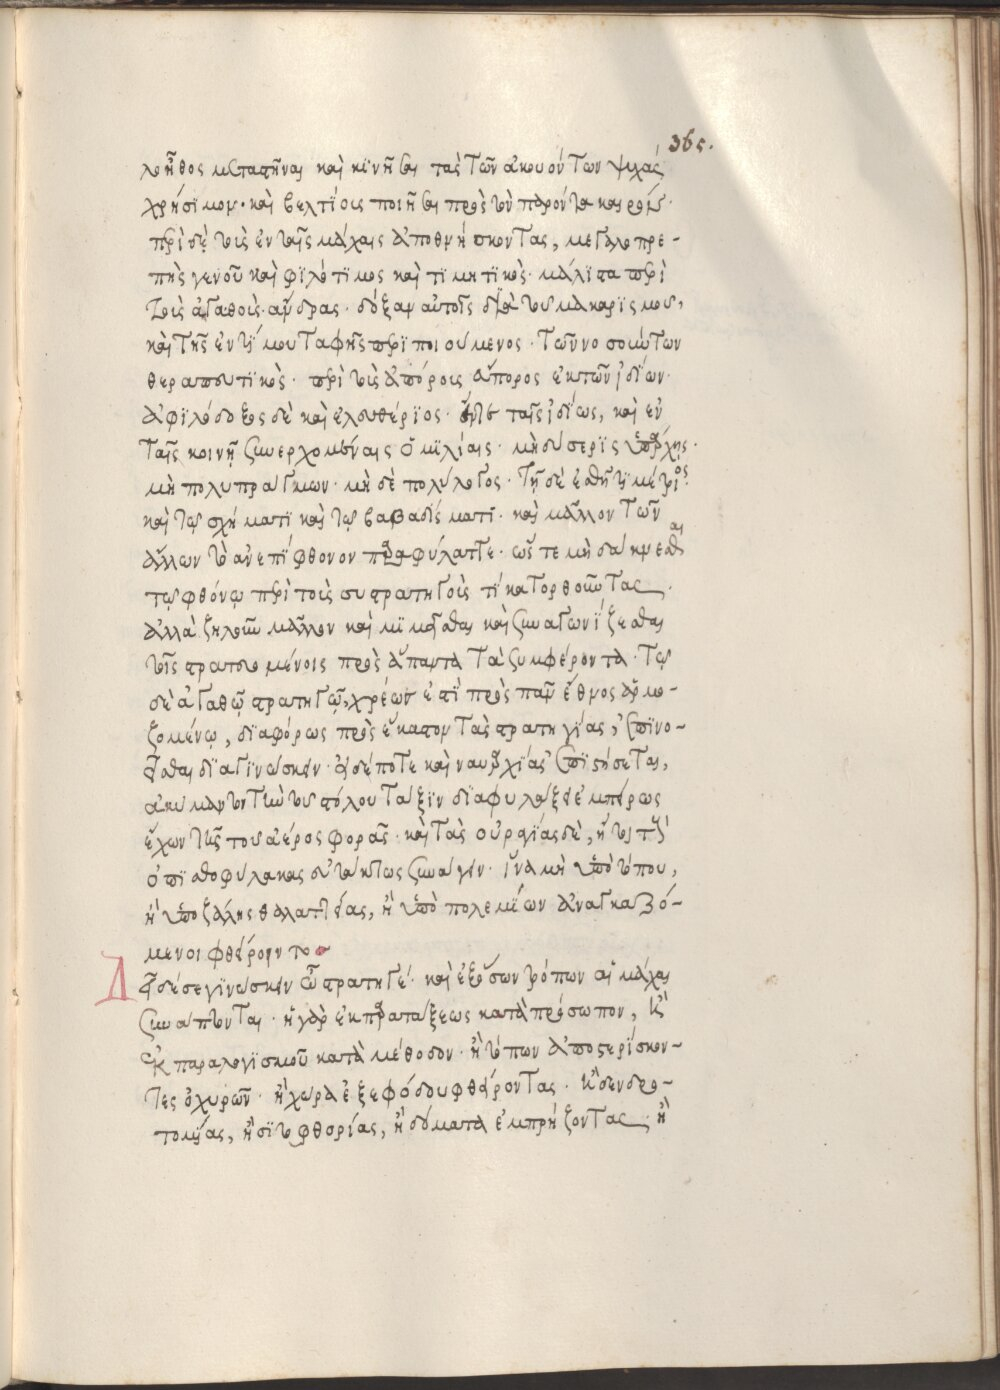 365.
λοῆθος μεταστῆναι καὶ κϊνῆσαι τὰς τῶν ἀκουόντων ψυχάς
χρήσϊμον· καὶ βελτίοις ποιῆσαι πρὸς τοὺς παρόντας καιρούς·
περὶ δὲ τοὺς ἐν ταῖς μάχαις ἀποθνήσκοντας, μεγαλοπρε-
πὴς γενοῦ καὶ φϊλότϊμος καὶ τϊμητϊκός· μάλϊστα περὶ
τοὺς ἀγαθοὺς ἄνδρας· δόξαν αὐτοῖς διὰ τοῦ μακαρϊσμοῦ,
καὶ τῆς ἐντίμου ταφῆς περϊποιούμενος· τῶν νοσούντων
θεραπευτϊκὸς· περὶ τοὺς ἀπόρους εὔπορος ἐκ τῶν ἰδίων·
ἀφϊλόδοξος δὲ καὶ ἐλευθέριος· ἔν τε ταῖς ἰδίαις, καὶ ἐν
ταῖς κοινῇ συνερχομέναις ὁμϊλίαις· μὴ δύσερϊς ὑπάρχῃς·
μὴ πολυπράγμων· μὴ δὲ πολύλογος· τῇ δὲ ἐσθῆτϊ μέτριος·
καὶ τῷ σχήματϊ καὶ τῷ βαδίσματϊ· καὶ μᾶλλον τῶν
ἄλλων τὸ ἀνεπίφθονον παραφύλαττε· ὥστε μὴ δάκνεσθαι
τῷ φθόνῳ περὶ τοὺς συστρατηγοὺς τί κατορθοῦντας·
ἀλλὰ ζηλοῦν μᾶλλον καὶ μϊμεῖσθαι καὶ συναγωνίζεσθαι
τοῖς πραττομένοις πρὸς ἅπαντα τὰ συμφέροντα· τῷ
δὲ ἀγαθῷ στρατηγῷ, χρέων ἐστὶ πρὸς πᾶν ἔθνος ἁρμο-
ζομένῳ, διαφόρως πρὸς ἕκαστον τὰς στρατηγίας, ἐπϊνο-
εῖσθαι διαγϊνώσκειν· εἰ δέ ποτε καὶ ναυμαχίας ἐπϊζήσεται,
ἀκύμαντον τὴν τοῦ στόλου τάξϊν διαφυλάξει ἐμπείρως
ἔχων τῆς τοῦ ἀέρος φορᾶς· καὶ τὰς
ὀπϊσθοφύλακας εὐτάκτως συνάγειν· ἵνα μὴ ὑπὸ τόπου,
ἢ ὑπὸ ζάλης θαλαττίας, ἢ ὑπὸ πολεμίων ἀναγκαζό-
μενοι φθείροιντο
Δεῖ δέ σε γϊνώσκειν ὦ στρατηγέ· καὶ ἐξ ὅσων τρόπων αἱ μάχαι
συνάπτονται· ἢ γὰρ ἐκ παρατάξεως κατὰ πρόσωπον, ἢ
ἐκ παραλογϊσμοῦ κατὰ μέθοδον· ἢ τόπων ἀποστερίσκον-
τες ὀχυρῶν· ἢ χώρα ἐξ ἐφόδου φθείροντας· ἢ δενδρο-
τομίας, ἢ σϊτοφθορίας, ἢ δώματα ἐμπρήζοντας· ἢ